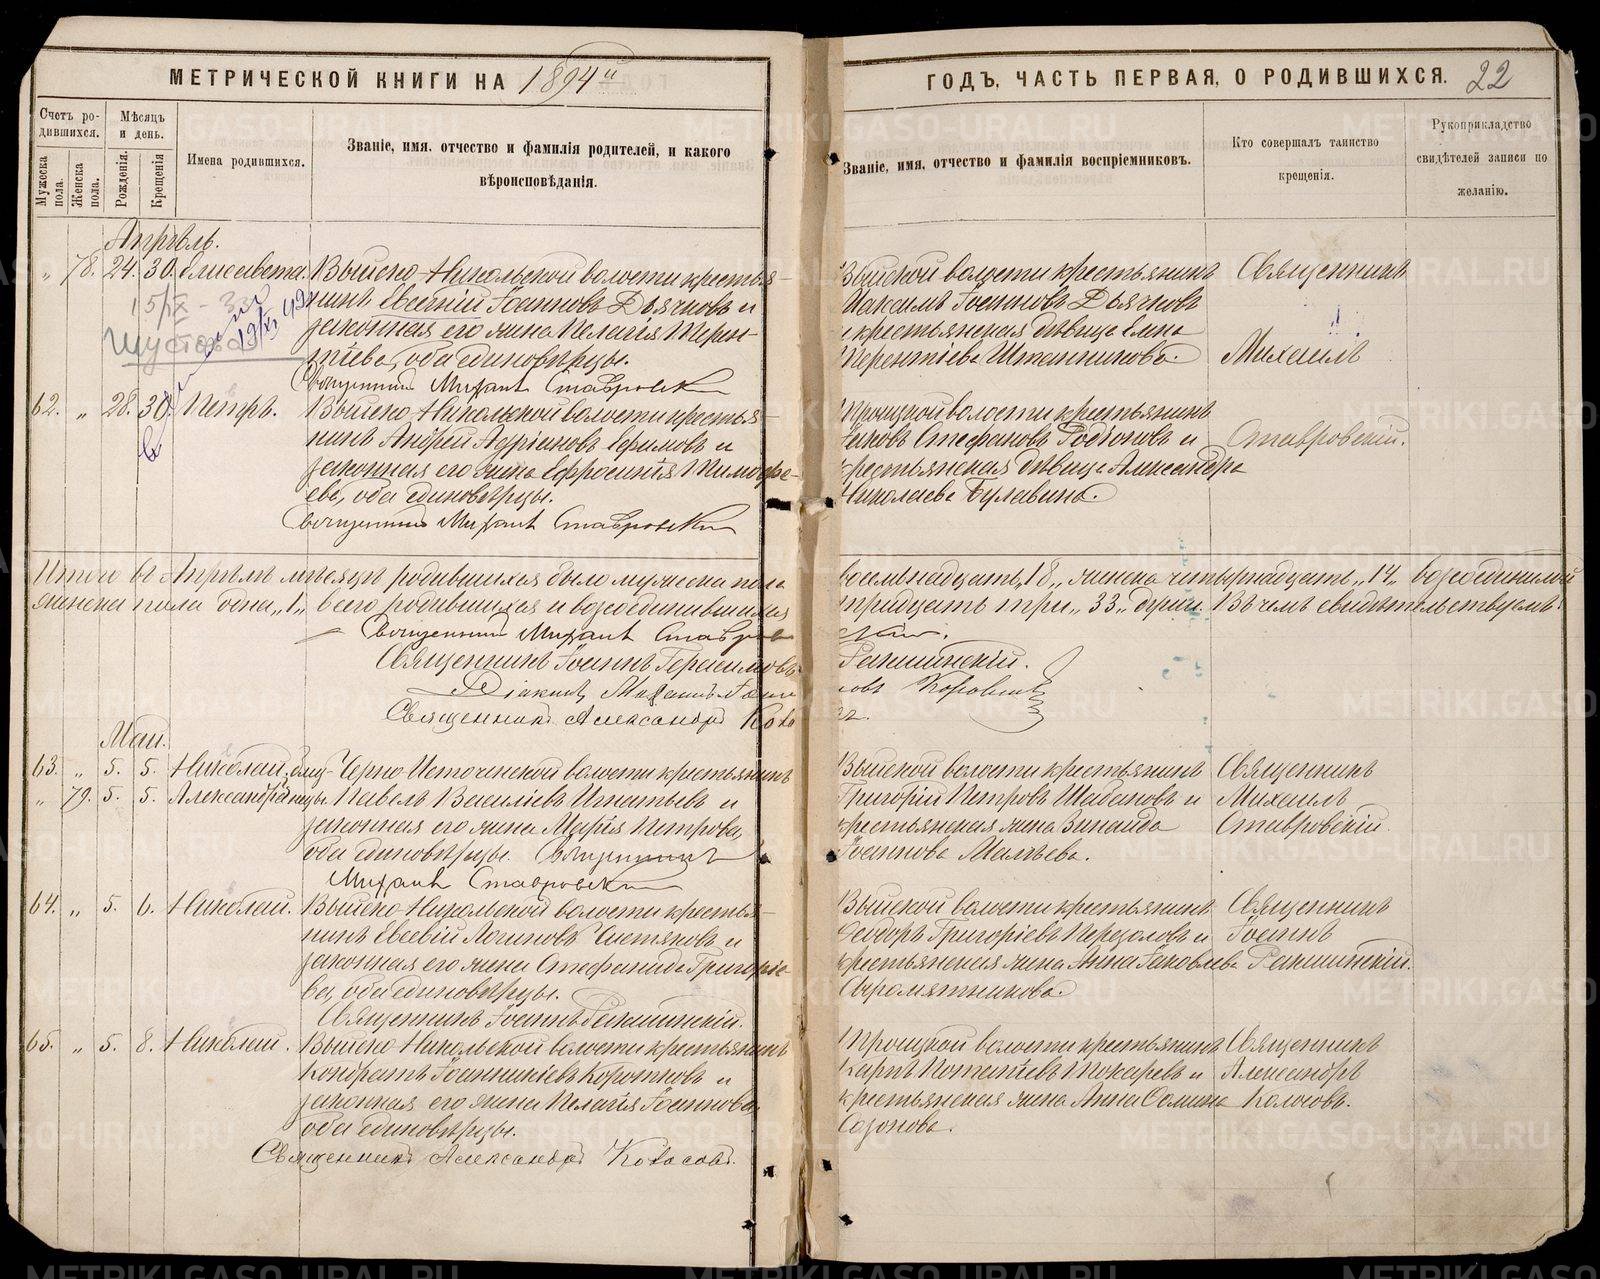 МЕТРИЧЕСКОЙ КНИГИ НА 1894 й
Счетъ родившихся.
Мѣсяцъ и день.
Мужеска пола.
Женска пола.
Рожденія.
Крещенія
Имена родившихся.
Званіе, имя, отчество и фамилія родителей, и какого
вѣроисповѣданія.
Апрѣль.
„ 78. 24. 30. Елисавета. Выйско-Никольской волости крестья-
нинъ Евѳимій Іоанновъ Дьячковъ и
законная его жена Пелагія Терен-
тіева, оба единовѣрцы.
Священникъ Михаилъ Ставровскій
15/IX - 33
Шустова
19/XI 42
62. „ 28. 30. Петръ. Выйско-Никольской волости крестья-
нинъ Андрей Адріановъ Ефимовъ и
законная его жена Ефросинія Тимофе-
ева, оба единовѣрцы.
Священникъ Михаилъ Ставровскій
Итого въ Апрѣлѣ мѣсяцѣ родившихся было мужеска пола
женска пола одна „1„ всего родившихся и возсоединившихся
Священникъ Михаилъ Ставров
Священникъ Іоаннъ Герасимовъ
Діаконъ Михаилъ
Священникъ Александръ Коло
Май.
63. „ 5. 5. Николай, близ-
„ 79. 5. 5. Александра нецы.
Черно-Источенской волости крестьянинъ
Павелъ Василіевъ Игнатьевъ и
законная его жена Марія Петрова,
оба единовѣрцы. Священникъ
Михаилъ Ставровскій
64. „ 5. 6. Николай. Выйско-Никольской волости крестья-
нинъ Евсевій Логиновъ Чистяковъ и
законная его жена Стефанида Григоріе-
ва, оба единовѣрцы.
Священникъ Іоаннъ Ракшинскій.
65. „ 5. 8. Николай. Выйско-Никольской волости крестьянинъ
Кондратъ Іоанникіевъ Коротковъ и
законная его жена Пелагія Іоаннова
оба единовѣрцы.
Священникъ Александръ Колосовъ.
ГОДЪ, ЧАСТЬ ПЕРВАЯ, О РОДИВШИХСЯ. 22
Званіе, имя, отчество и фамилія воспріемниковъ.
Кто совершалъ таинство
крещенія.
Рукоприкладство
свидѣтелей записи по
желанію.
Выйской волости крестьянинъ Священникъ
Максимъ Іоанновъ Дьячковъ
и крестьянская дѣвица Елена
Терентіева Штанникова. Михаилъ
Троицкой волости крестьянинъ
Іаковъ Стефановъ Родіоновъ и Ставровскій.
крестьянская дѣвица Александра
Николаева Булавина.
восемьнадцать „18„ женска четырнадцать „14„ возсоединилой
тридцать три „33„ души. Въ чемъ свидѣтельствуемъ:
скій.
Ракшинскій.
новъ Коровинъ
въ.
Выйской волости крестьянинъ Священникъ
Григорій Петровъ Шабановъ и Михаилъ
крестьянская жена Зинаида Ставровскій.
Іоаннова Малѣева.
Выйской волости крестьянинъ Священникъ
Ѳеодоръ Григоріевъ Перезоловъ и Іоаннъ
крестьянская жена Анна Іаковлева Ракшинскій.
Сыромятникова.
Троицкой волости крестьянинъ Священникъ
Карпъ Потапіевъ Токаревъ и Александръ
крестьянская жена Анна Сомина Колосовъ.
Сазонова.
METRIKI.GASO-URAL.RU